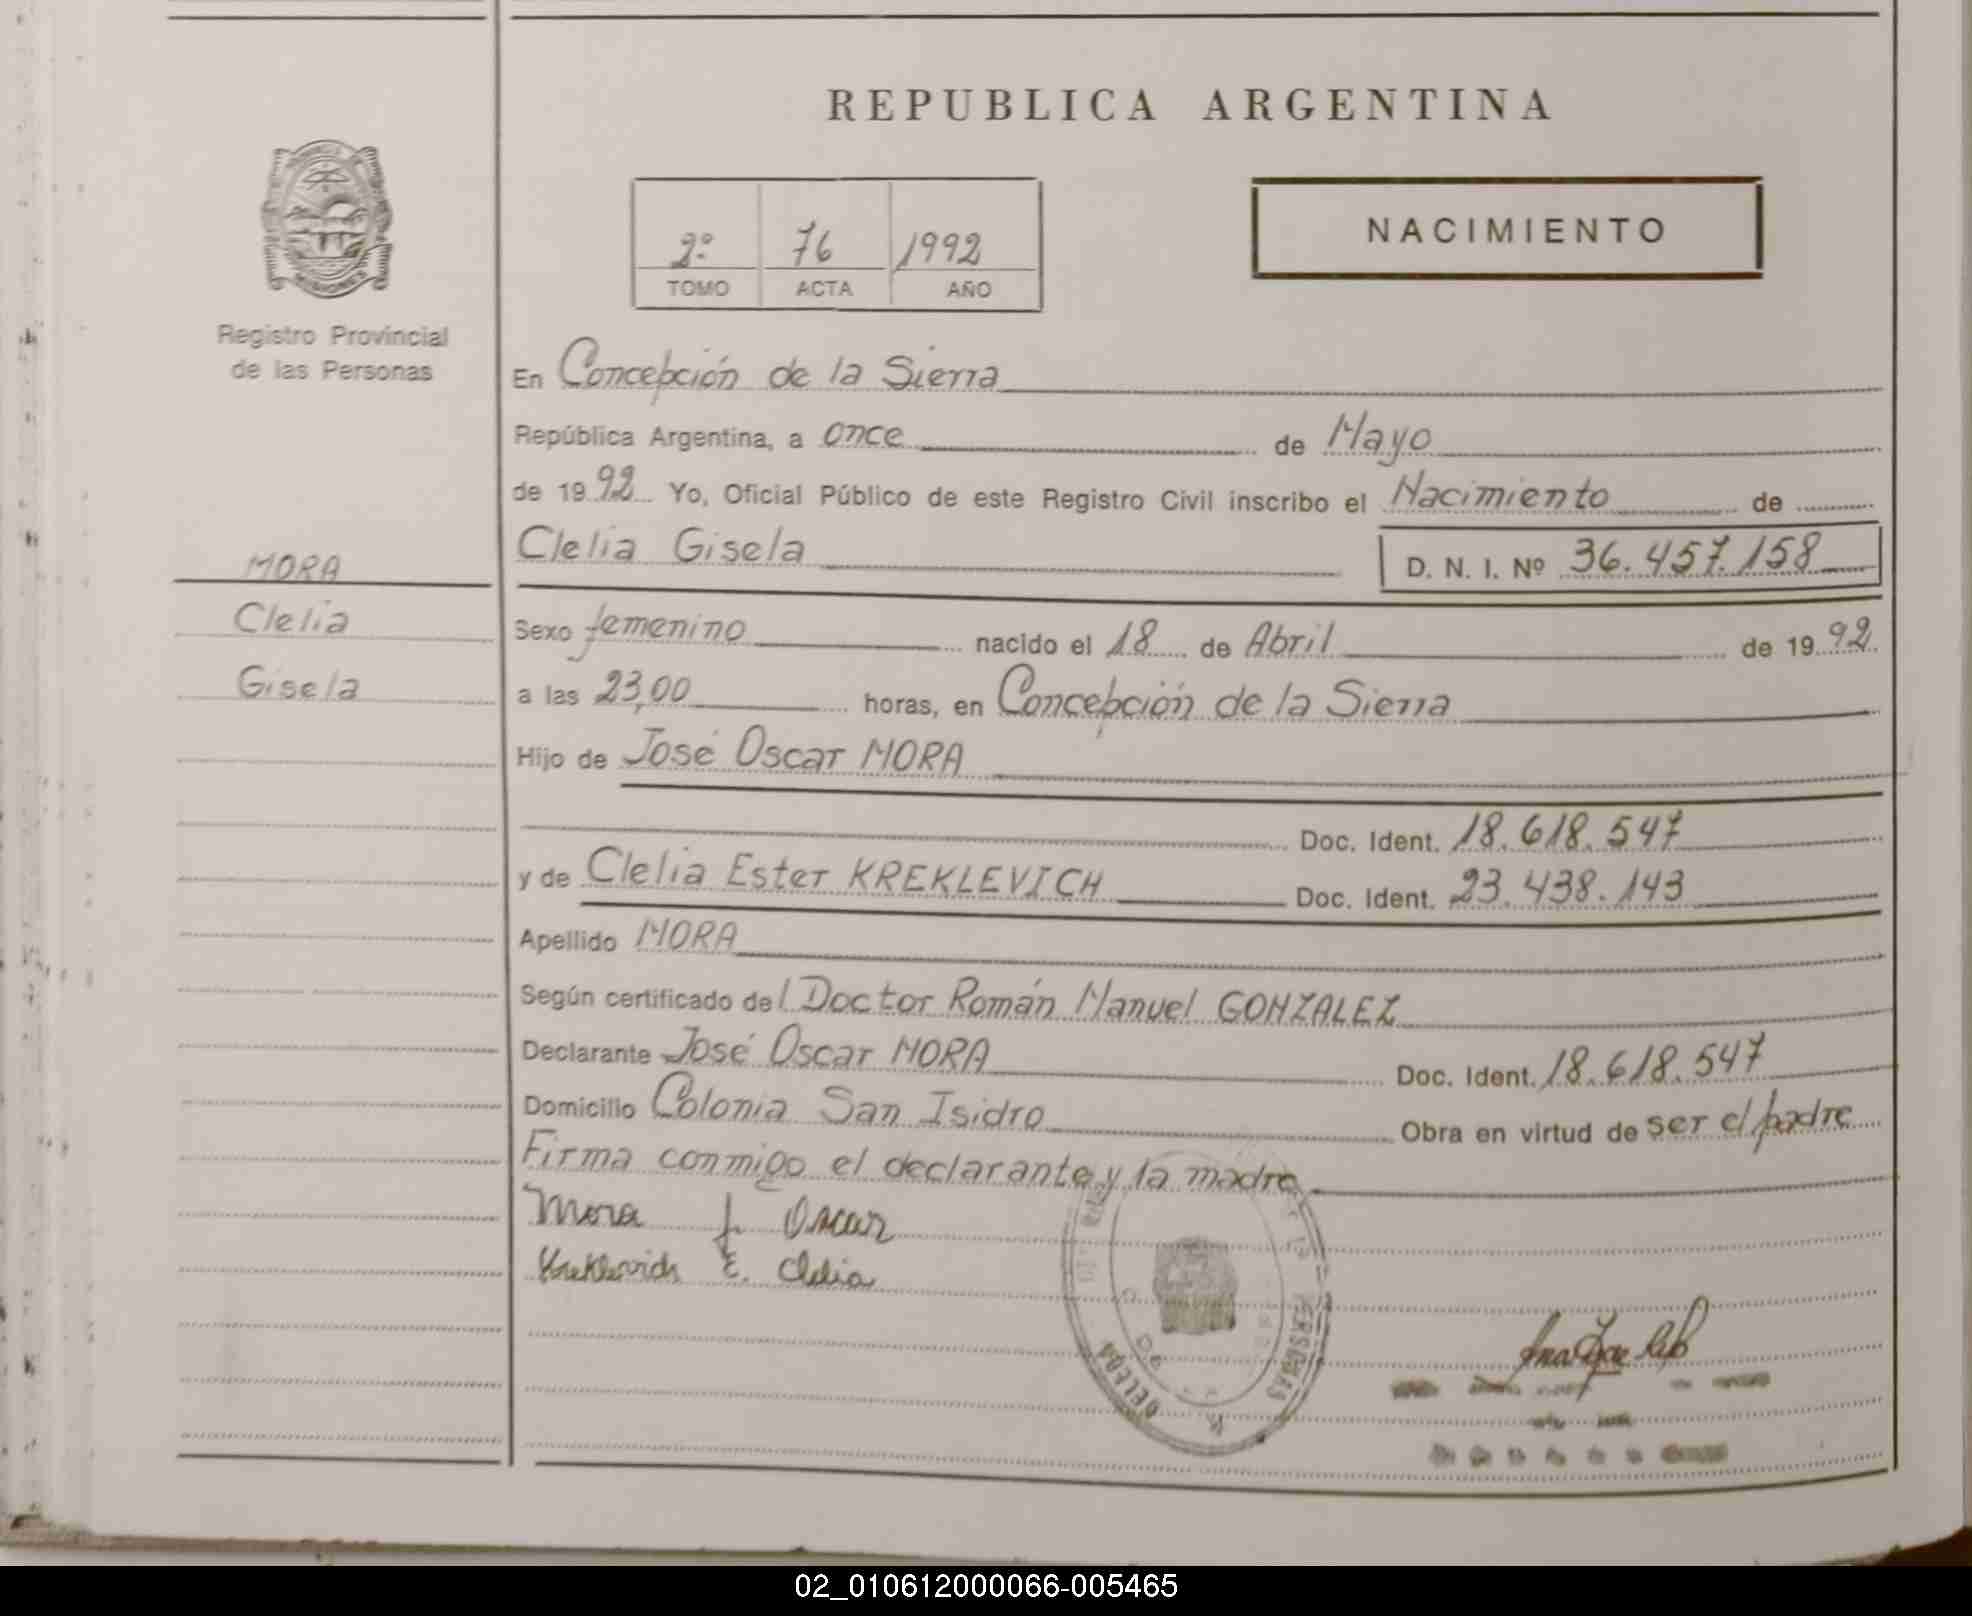 REPUBLICA ARGENTINA
NACIMIENTO
2º 76 1992
TOMO ACTA AÑO
MISIONES
Registro Provincial
de las Personas
MORA
Clelia
Gisela
En Concepción de la Sierra
República Argentina, a once de Mayo
de 1992 Yo, Oficial Público de este Registro Civil inscribo el Nacimiento de
Clelia Gisela D. N. I. Nº 36.457.158
Sexo femenino nacido el 18 de Abril de 1992
a las 23,00 horas, en Concepción de la Sierra
Hijo de José Oscar MORA
Doc. Ident. 18.618.547
y de Clelia Ester KREKLEVICH Doc. Ident. 23.438.143
Apellido MORA
Según certificado del Doctor Román Manuel GONZALEZ
Declarante José Oscar MORA Doc. Ident. 18.618.547
Domicilio Colonia San Isidro Obra en virtud de ser el padre
Firma conmigo el declarante y la madre
Mora J. Oscar
Kreklevich E. Clelia
PERSONAS
02_010612000066-005465